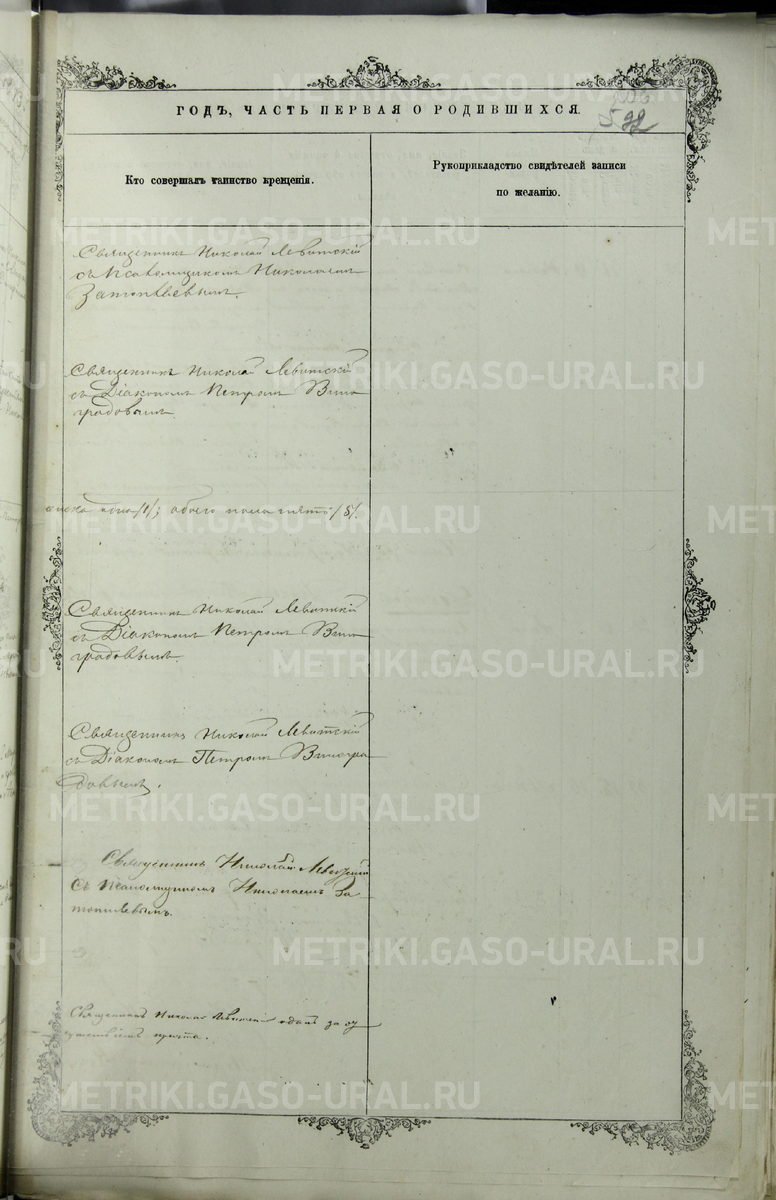 ГОДЪ, ЧАСТЬ ПЕРВАЯ О РОДИВШИХСЯ.
Кто совершалъ таинство крещенія.
Рукоприкладство свидѣтелей записи
по желанію.
Священникъ Николай Левитскій
съ Псаломщикомъ Николаемъ
Священникъ Николай Левитскій
съ Діакономъ Петромъ Вино
градовымъ.
одна /1/; обоего пола пять /5/.
Священникъ Николай Левитскій
съ Діакономъ Петромъ Вино
градовымъ.
Священникъ Николай Левитскій
съ Діакономъ Петромъ Виногра
довымъ.
Священникъ Николай Левитскій
съ Псаломщикомъ Николаемъ За
Священникъ Николай Левитскій одинъ за от
METRIKI.GASO-URAL.RU